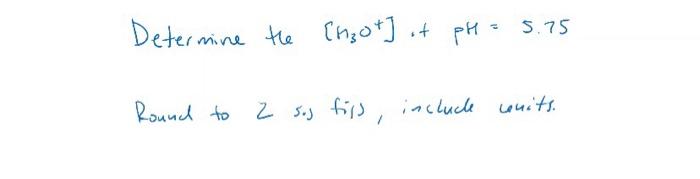 Determine the [H₃O⁺] if pH = 5.75
Round to 2 sig figs, include units.